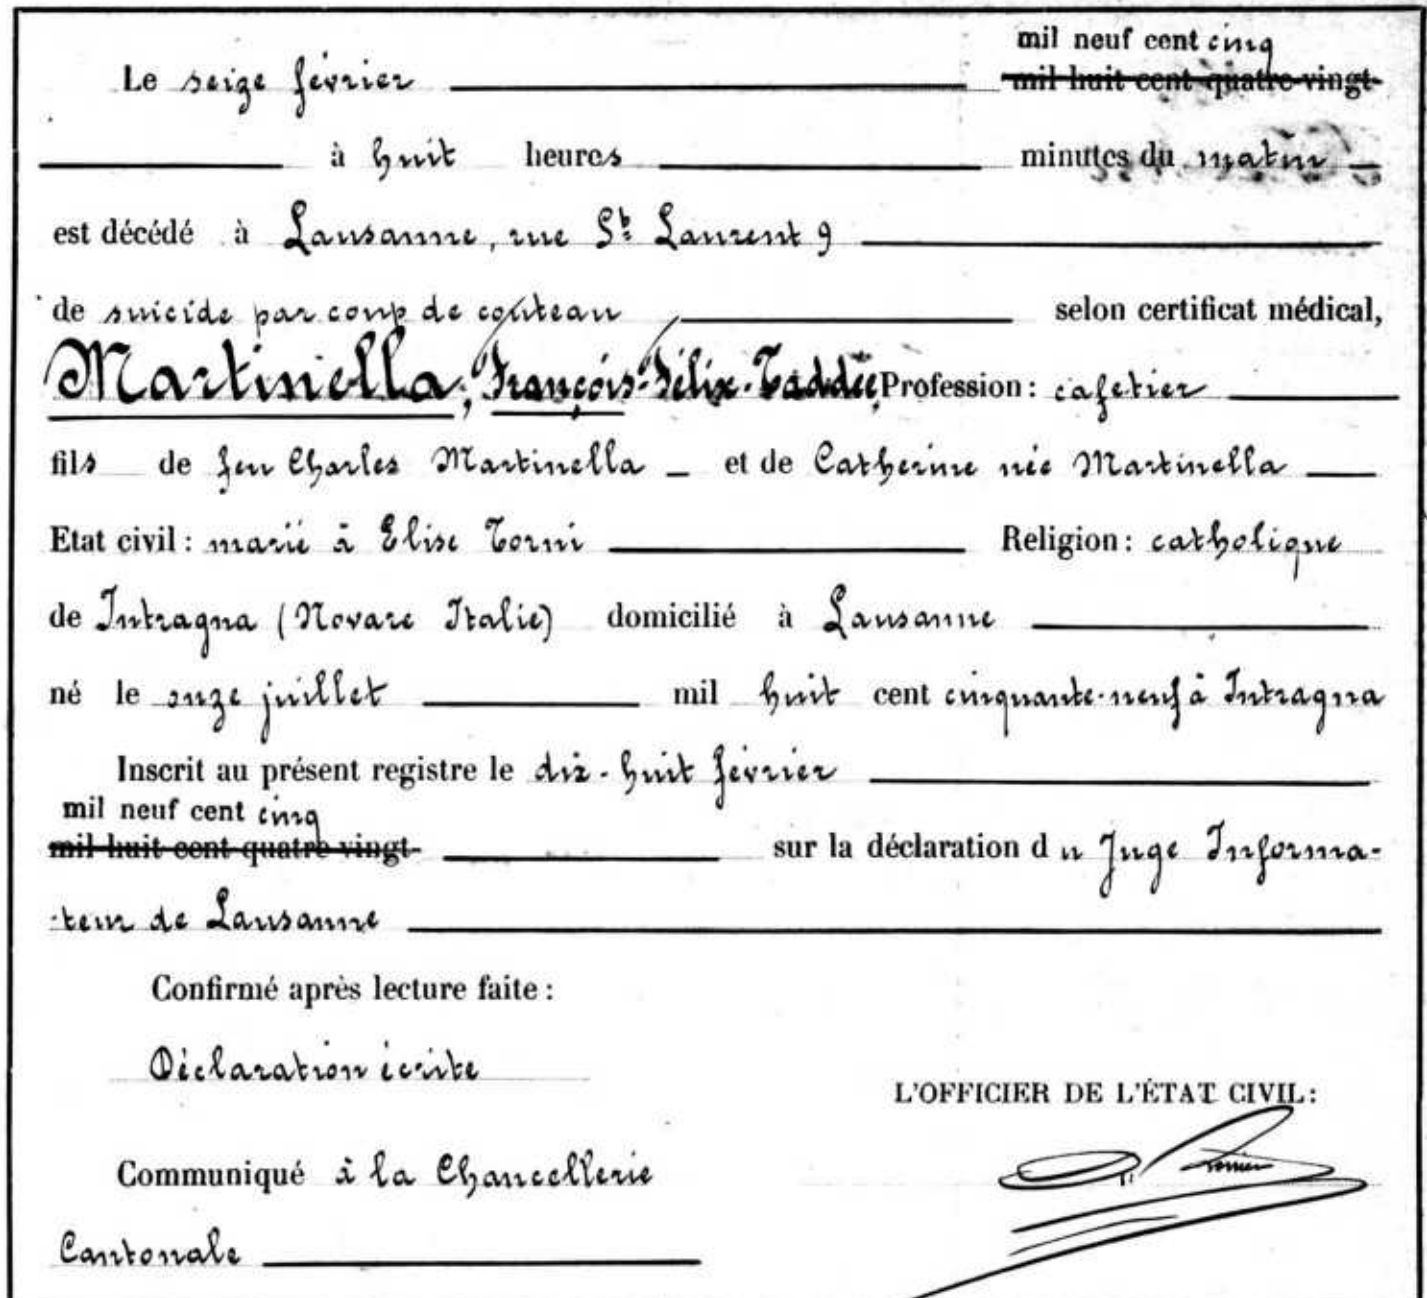 mil neuf cent cinq
Le seize février mil huit cent quatre-vingt-
à huit heures minutes du matin
est décédé à Lausanne, rue St Laurent 9
de suicide par coup de couteau selon certificat médical,
Martinella, François-Félix-Taddée, Profession : cafetier
fils de feu Charles Martinella et de Catherine née Martinella
Etat civil : marié à Elise Torni Religion : catholique
de Intragna (Novare Italie) domicilié à Lausanne
né le onze juillet mil huit cent cinquante-neuf à Intragna
Inscrit au présent registre le dix-huit février
mil neuf cent cinq
mil huit cent quatre-vingt- sur la déclaration du Juge Informa-
-teur de Lausanne
Confirmé après lecture faite :
Déclaration écrite
L'OFFICIER DE L'ÉTAT CIVIL :
Communiqué à la Chancellerie
Cantonale